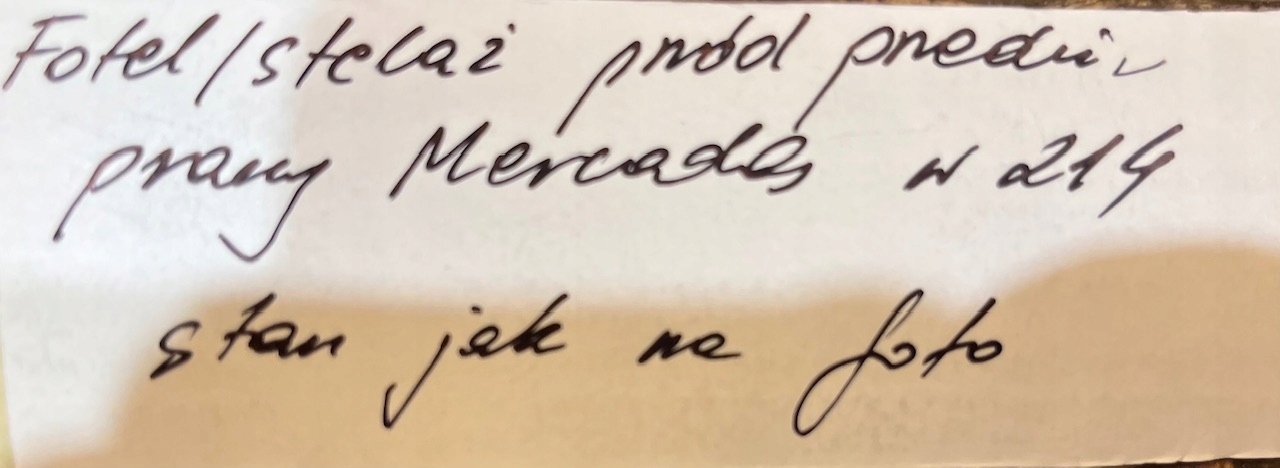 Fotel/stelaż przód przedni
prawy Mercedes w 214
stan jak na foto